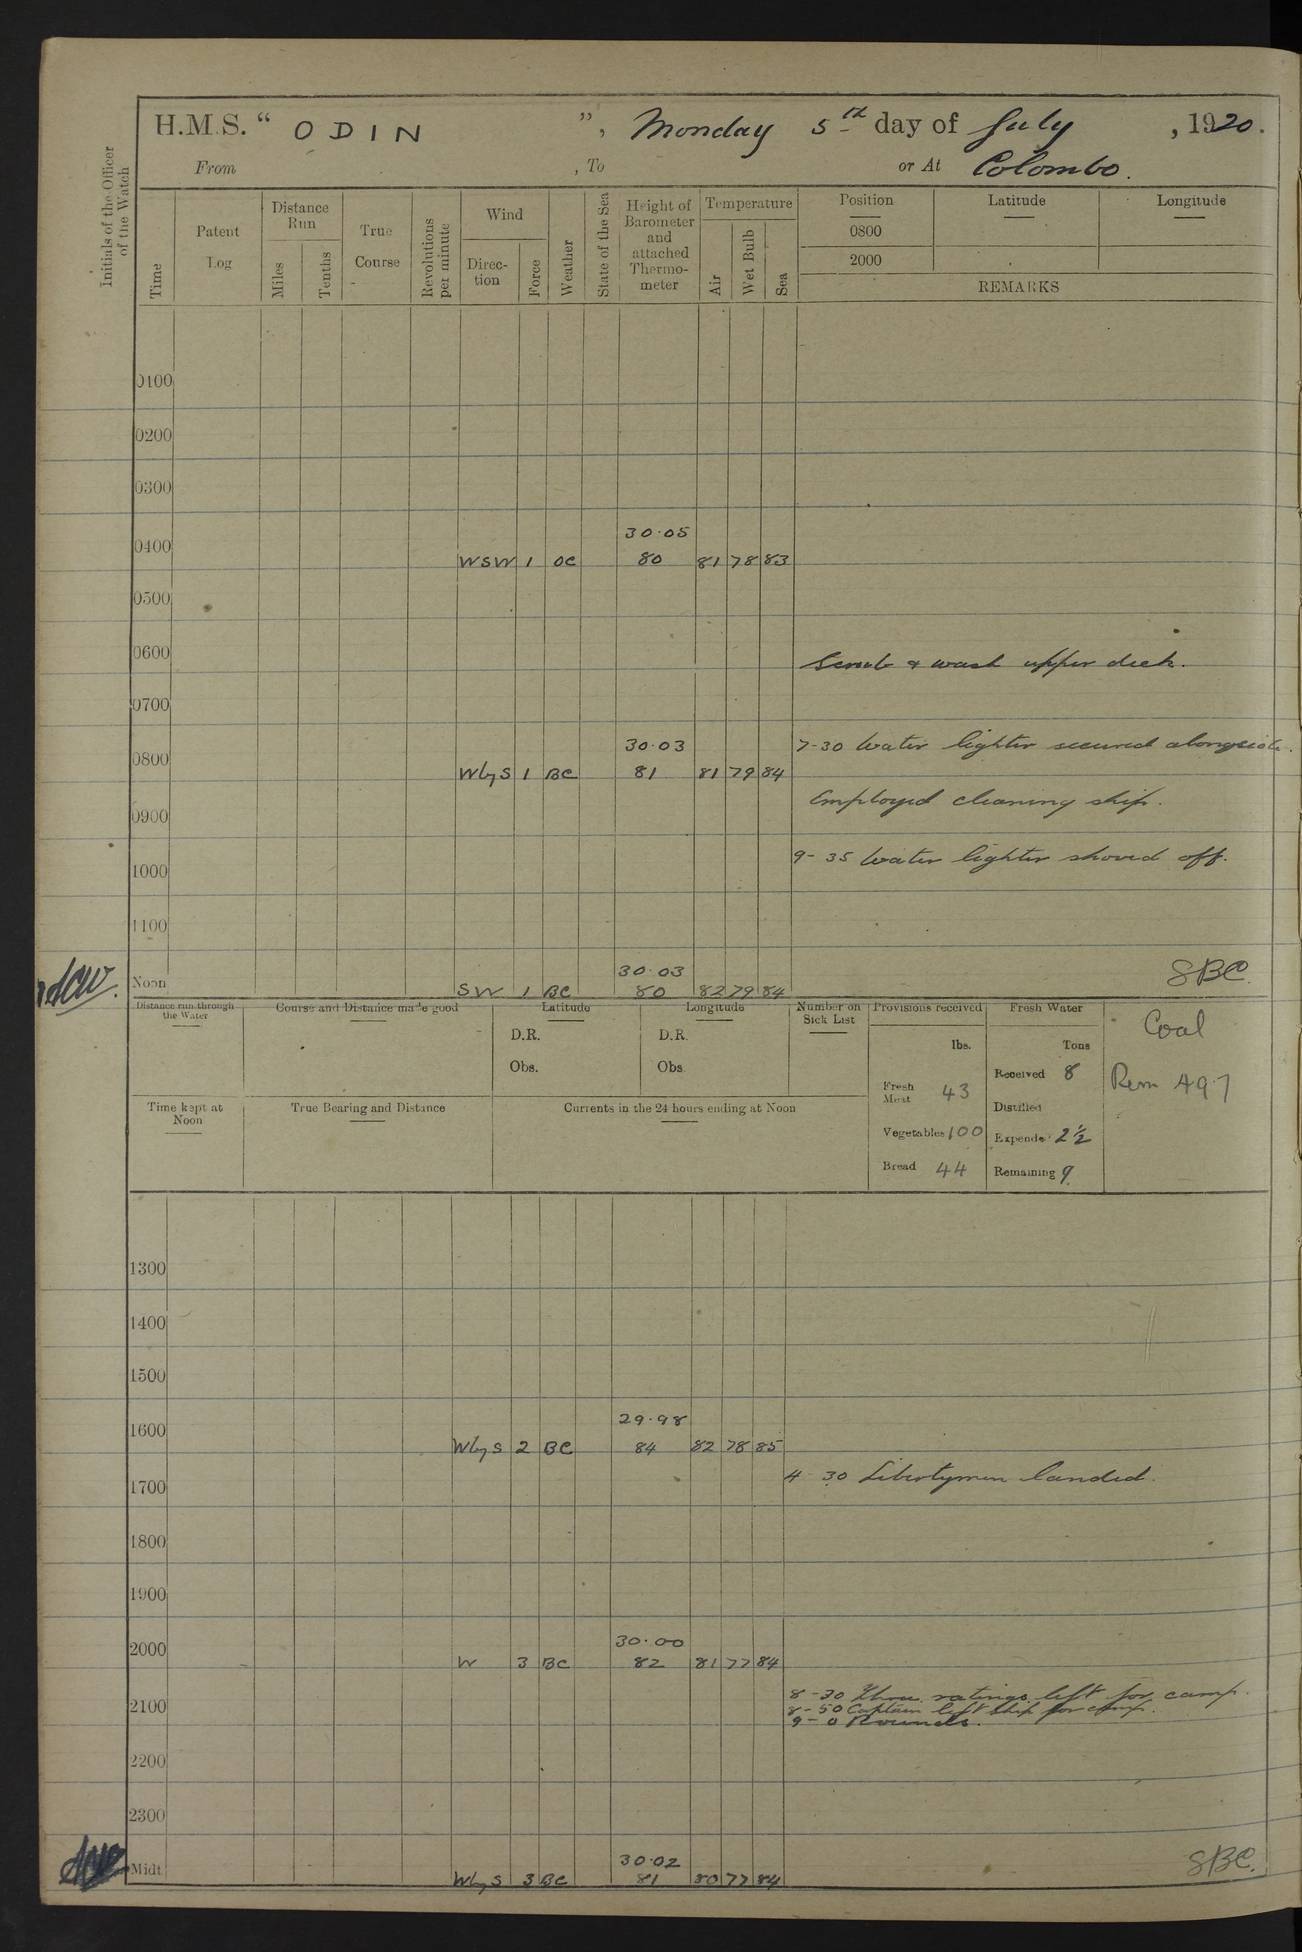 H.M.S. “ ODIN ”, Monday 5th day of July , 1920.
From , To or At Colombo.
Initials of the Officer of the Watch
Time
Patent Log
Distance Run
Miles
Tenths
True Course
Revolutions per minute
Wind
Direction
Force
Weather
State of the Sea
Height of Barometer and attached Thermometer
Temperature
Air
Wet Bulb
Sea
Position Latitude Longitude
0800
2000
REMARKS
0100
0200
0300
30.05
0400 WSW 1 OC 80 81 78 83
0500
0600 Scrub & wash upper deck.
0700
30.03 7-30 Water lighter secured alongside.
0800 WbyS 1 BC 81 81 79 84
0900 Employed cleaning ship.
1000 9-35 Water lighter shoved off.
1100
30.03 SBC
Noon SW 1 BC 80 82 79 84
Distance run through the Water
Course and Distance made good
Latitude
D.R.
Obs.
Longitude
D.R.
Obs.
Number on Sick List
Provisions received
lbs.
Fresh Meat 43
Vegetables 100
Bread 44
Fresh Water
Tons
Received 8
Distilled
Expended 2½
Remaining 9
Coal
Rem 497
Time kept at Noon
True Bearing and Distance
Currents in the 24 hours ending at Noon
1300
1400
1500
29.98
1600 WbyS 2 BC 84 82 78 85
1700 4-30 Libertymen landed.
1800
1900
30.00
2000 W 3 BC 82 81 77 84
8-30 Three ratings left for camp.
2100 8-50 Captain left ship for camp.
9-0 Rounds.
2200
2300
30.02 SBC.
Midt WbyS 3 BC 81 80 77 84